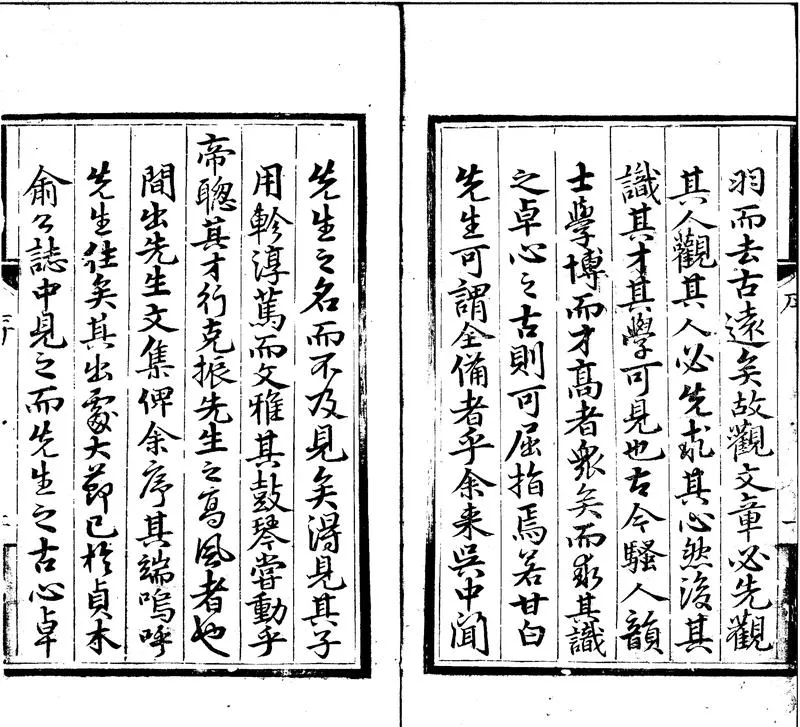 羽而去古遠矣故觀文章必先觀
其人觀其人必先求其心然後其
識其才其學可見也古今騷人韻
士學博而才髙者衆矣而求其識
之卓心之古則可屈指焉若甘白
先生可謂全備者乎余来吳中聞
先生之名而不及見矣得見其子
用軫淳篤而文雅其鼓琴嘗動乎
帝聰其才行克振先生之高風者也
間出先生文集俾余序其端嗚呼
先生往矣其出處大節已於貞木
俞公誌中見之而先生之古心卓
序